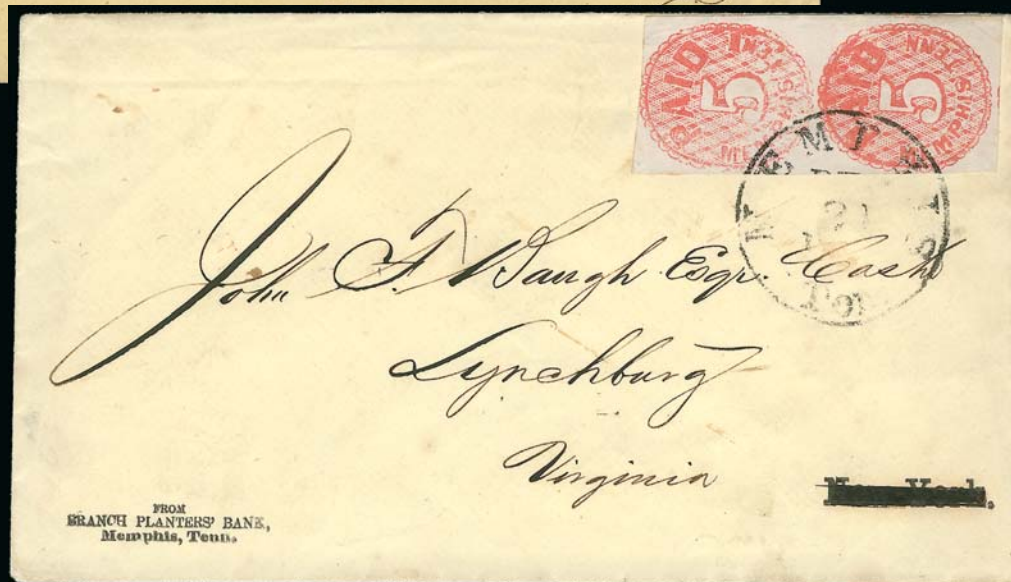 PAID 5 MEMPHIS TENN
PAID 5 MEMPHIS TENN
MEMPHIS
21
Ten
John F. Waugh Esqr. Cash
Lynchburg
Virginia
New York.
FROM
BRANCH PLANTERS' BANK,
Memphis, Tenn.